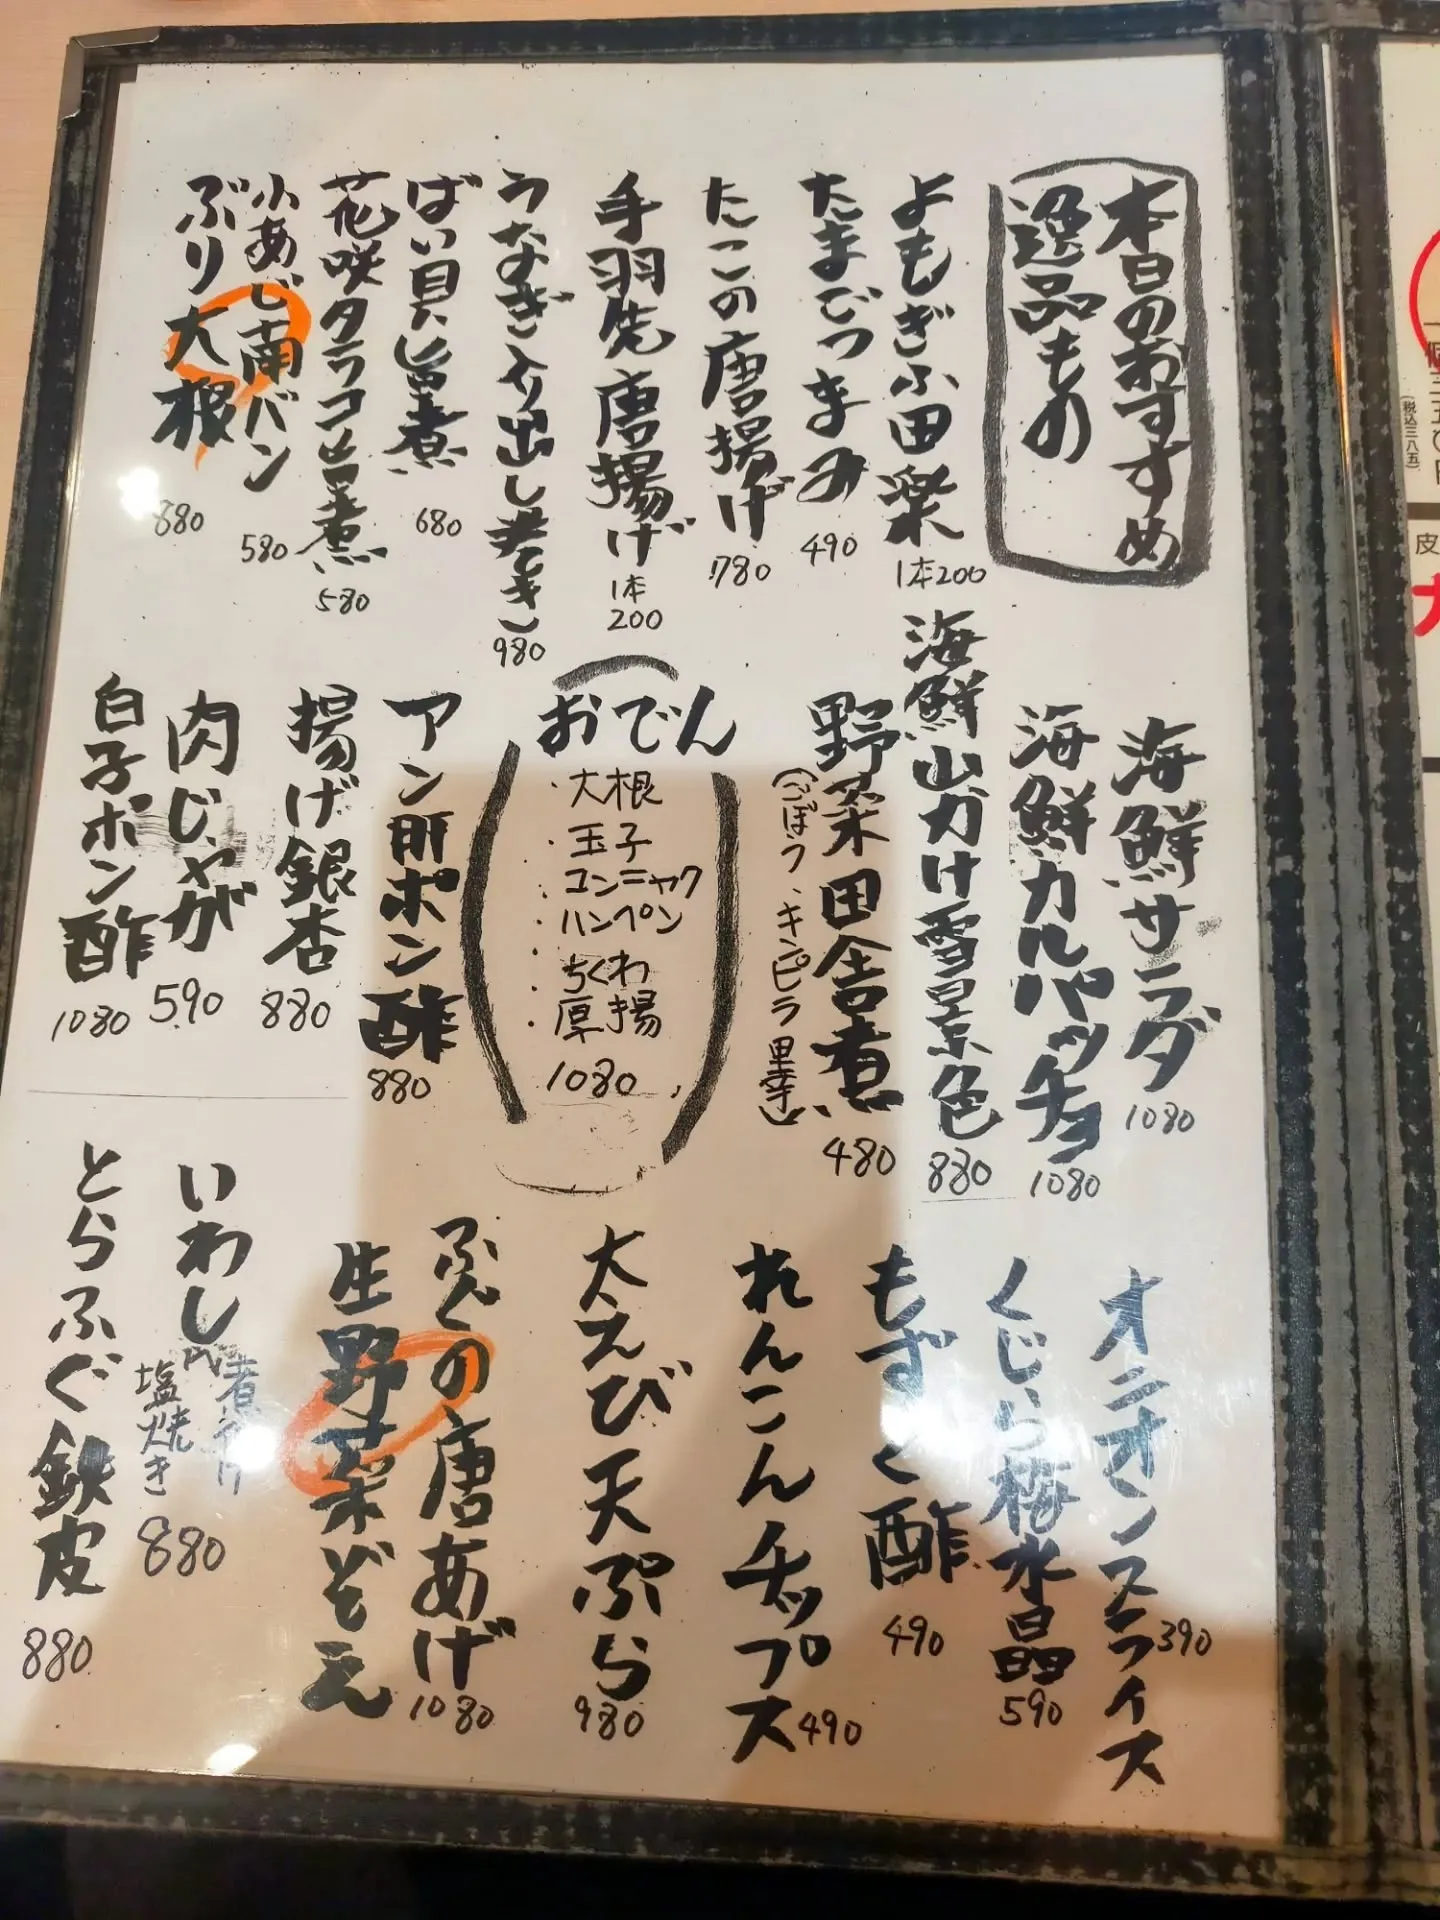 本日のおすすめ
逸品もの
よもぎふ田楽
1本200
たまごつまみ
490
たこの唐揚げ
780
手羽先唐揚げ
1本
200
うなぎ入り出し巻き
980
ばい貝旨煮
680
花咲タラコ旨煮
580
小あじ南バン
580
ぶり大根
880
海鮮サラダ
1080
海鮮カルパッチョ
1080
海鮮山かけ雪景色
880
野菜田舎煮
(ごぼう、キンピラ
480
おでん
・大根
・玉子
・コンニャク
・ハンペン
・ちくわ
・厚揚
1080
アン肝ポン酢
880
揚げ銀杏
880
肉じゃが
590
白子ポン酢
1080
オニオンスライス
390
くじら梅水晶
590
もずく酢
490
れんこんチップス
490
大えび天ぷら
980
ふぐの唐あげ
1080
生野菜ぞえ
いわし
煮付け
塩焼き
880
とらふぐ鉄皮
880
(税込三八五)
皮